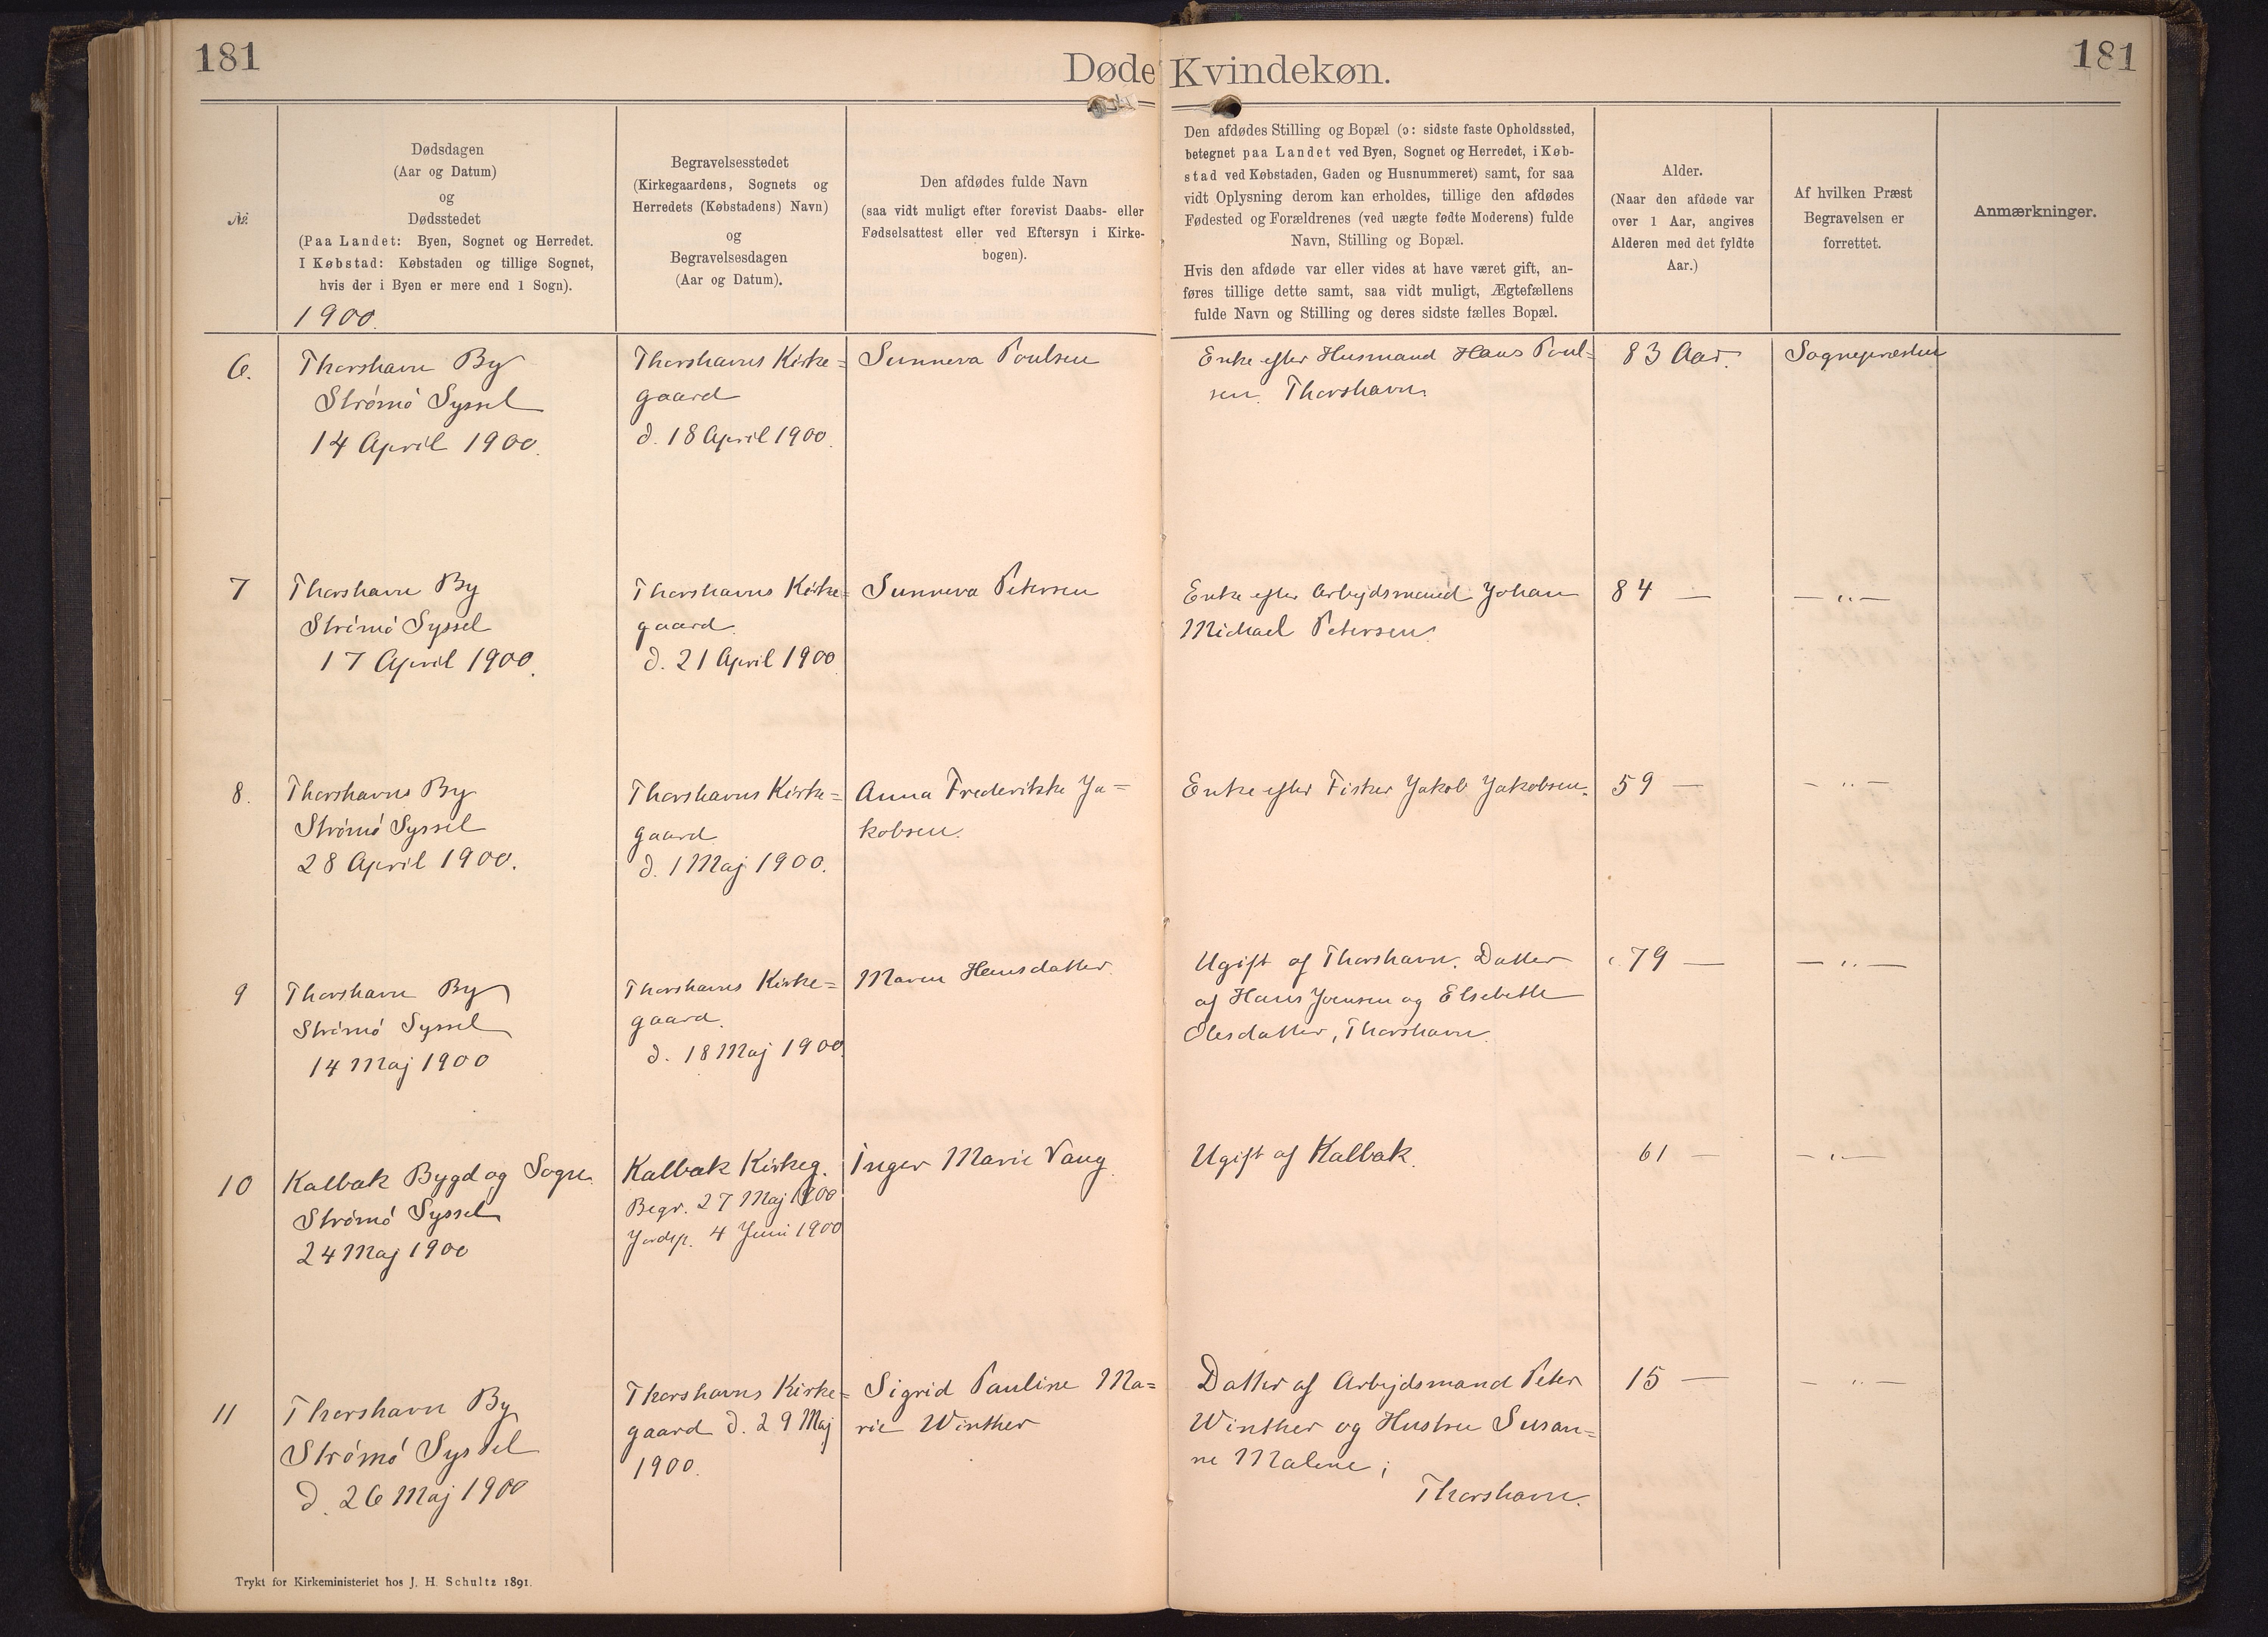 181
Døde Kvindekøn.
181
№
Dødsdagen
(Aar og Datum)
og
Dødsstedet
(Paa Landet: Byen, Sognet og Herredet.
I Købstad: Købstaden og tillige Sognet,
hvis der i Byen er mere end 1 Sogn).
1900.
Begravelsesstedet
(Kirkegaardens, Sognets og
Herredets (Købstadens) Navn)
og
Begravelsesdagen
(Aar og Datum).
Den afdødes fulde Navn
(saa vidt muligt efter forevist Daabs- eller
Fødselsattest eller ved Eftersyn i Kirke-
bogen).
Den afdødes Stilling og Bopæl (ɔ: sidste faste Opholdssted,
betegnet paa Landet ved Byen, Sognet og Herredet, i Køb-
stad ved Købstaden, Gaden og Husnummeret) samt, for saa
vidt Oplysning derom kan erholdes, tillige den afdødes
Fødested og Forældrenes (ved uægte fødte Moderens) fulde
Navn, Stilling og Bopæl.
Hvis den afdøde var eller vides at have været gift, an-
føres tillige dette samt, saa vidt muligt, Ægtefællens
fulde Navn og Stilling og deres sidste fælles Bopæl.
Alder.
(Naar den afdøde var
over 1 Aar, angives
Alderen med det fyldte
Aar.)
Af hvilken Præst
Begravelsen er
forrettet.
Anmærkninger.
6.
Thorshavn By
Strømø Syssel
14 April 1900.
Thorshavns Kirke=
gaard
d. 18 April 1900.
Sunneva Poulsen
Enke efter Husmand Hans Poul=
sen. Thorshavn.
83 Aar.
Sognepræsten
7
Thorshavn By
Strømø Syssel
17 April 1900.
Thorshavns Kirke=
gaard.
d. 21 April 1900
Sunneva Petersen
Enke efter Arbejdsmand Johan
Michael Petersen.
84 —
— „ —
8.
Thorshavns By
Strømø Syssel
28 April 1900.
Thorshavns Kirke=
gaard.
d. 1 Maj 1900.
Anna Frederikke Ja=
kobsen.
Enke efter Fisker Jakob Jakobsen.
59 —
— „ —
9
Thorshavn By
Strømø Syssel
14 Maj 1900
Thorshavns Kirke=
gaard.
d. 18 Maj 1900.
Maren Hansdatter.
Ugift af Thorshavn. Datter
af Hans Joensen og Elsebeth
Olesdatter, Thorshavn.
79 —
— „ —
10
Kalbak Bygd og Sogn.
Strømø Syssel
24 Maj 1900
Kalbak Kirkeg.
Begr. 27 Maj 1900
Jordsp. 4 Juni 1900
Inger Marie Vang
Ugift af Kalbak.
61 —
— „ —
11
Thorshavn By
Strømø Syssel
d. 26 Maj 1900
Thorshavns Kirke=
gaard d. 29 Maj
1900.
Sigrid Pauline Ma=
rie Winther
Datter af Arbejdsmand Peter
Winther og Hustru Susan=
ne Malene;
Thorshavn.
15 —
— „ —
Trykt for Kirkeministeriet hos J. H. Schultz 1891.